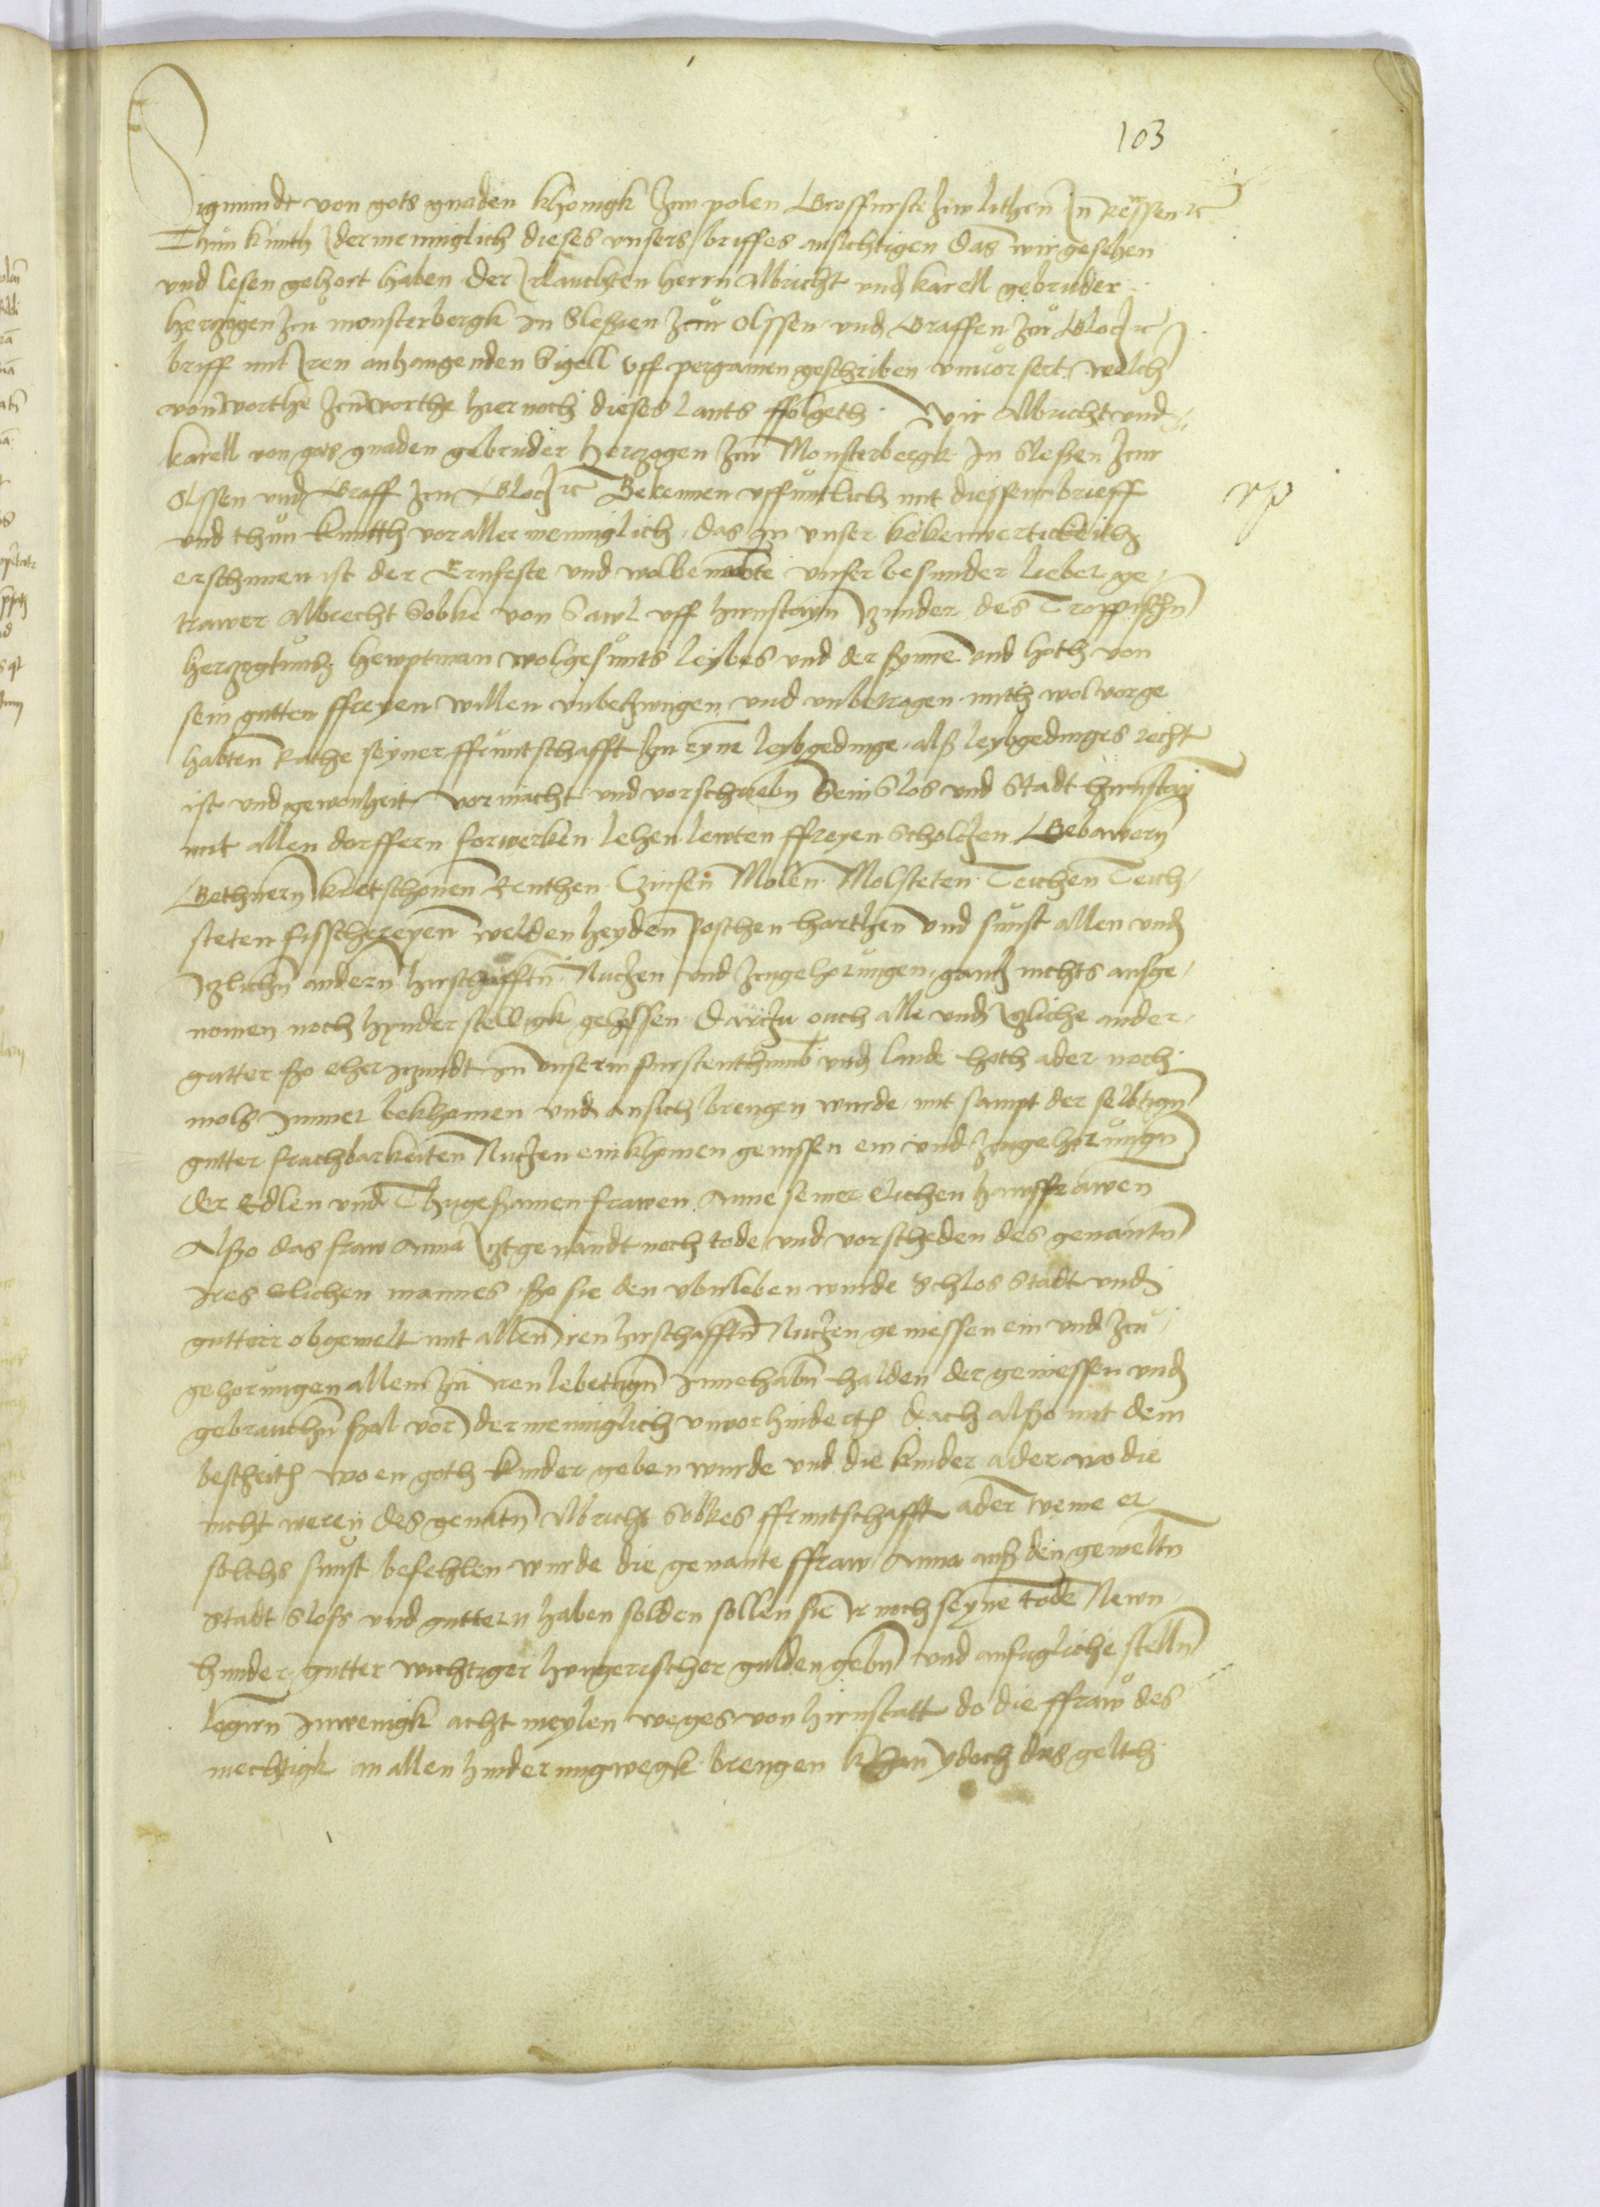 103
Sigmundt von gots gnaden khonigk zcu polen Grosfurste zcw lithen In Rewssen etc
Thun kunth Idermenniglich dieses unsers briffes ansichtigen das wir gesehen
und lesen gehort haben der Irlauchten herrn Albricht und karell gebruder
herzogen zcu monsterbergk in Slesien zcur Olssen und Graffen zcu Glocz etc
briff mit Iren anhangenden Sigell uff pergamen geschriben unvorsert welch
von worthe zcu worthe hier noch dieses lauts ffolgeth Wir Albricht und
karell von gots gnaden gebruder herczogen zcu Monsterbergk In Slesien zcur
Olssen und Graff zcu Glocz etc Bekennen uffintlich mit diessem brieff
und thun kuntth vor allermenniglich das In unser kekenwertickeith
erschinen ist der Ernfeste und wolbenabte unser besunder lieber ge
trawer Albrecht Sobke von Sawl uff hirnstayn Itzunder des Troppischn
herczogtumb hewptman wolgesunts leybes und der synne und hoth von
sein gutten ffreyen willen unbetzwngen und unbetrogen mith wolvorge
habten Rathe seyner ffruntschafft zcu eyne leybgedinge als leybgedinges recht
ist und gewonheit vormacht und vorschriebn Sein Slos und Stadt hirnstay
mit allen dorffern forwerken lehen lewten ffreyen Scholczen Gebawern
Gethnern kretschmen Renthen Czinsen Molen Molsteten Teichen Teich
steten fisschereyen welden heyden poschen harthen und sunst allen und
Itzlichn andern hirschafftn Nuczen und zcugehorungen gantz nichts ausge
nomen noch hynderstelligk gelossen Darczu ouch alle und Igliche ander
gutter so eher Itzundt In unserm furstenthumb und lande hoth ader noch
mols Immer bekhomen und an sich brengen wurde mit sampt der selbtign
gutter fruchbarkeiten Nuczen einkhomen genissen ein und zcugehorungn
der Edlen und Thugesamen frawen Anne seiner Elichen hawsfrawen
Also das fraw Anna Itzgenandt noch tode und vorscheden des genantn
Ires Elichen mannes so sie den uberleben wurde Schlos Stadt und
gutter obgemelt mit allen Iren hirschafftn Nuczen geniessen ein und zcu
gehorungen allem zcu Iren lebetagn Innehabn halden der geniessen und
gebrauchn sal vor Idermenniglich unvorhindert doch also mit dem
bescheith wo en goth kinder geben wurde und die kinder ader wo die
nicht weren des genatn Albricht Sobkes ffruntschafft ader weme er
solchs sunst befehlen wurde die genante ffraw Anna aus den gemeltn
Stadt Slos und guttern haben solden sollen sie Ir noch seyne tode Newn
hunder gutter wichtiger hungerischer gulden gebn und anfugliche stelln
legern Inwenigk acht meylen weges von hirnstatt do die ffraw des
mechtigk an allen hinderung wegk brengen khan ydoch das gelth